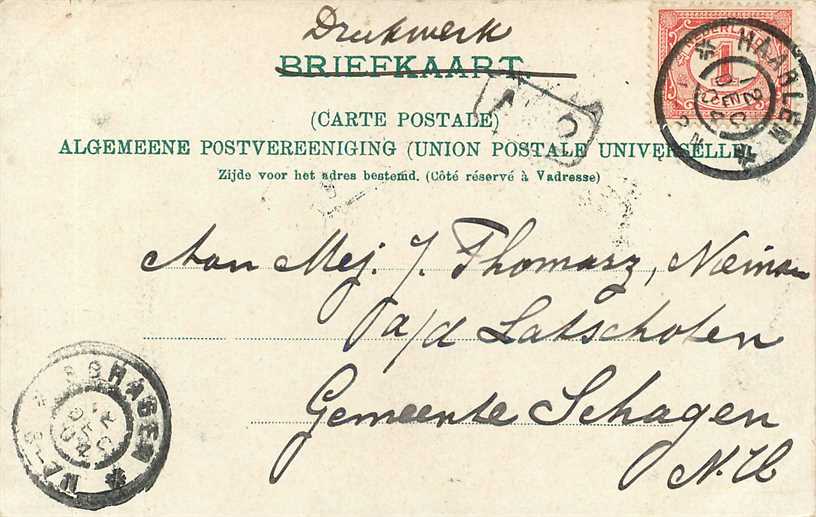 Drukwerk
BRIEFKAART
(CARTE POSTALE)
ALGEMEENE POSTVEREENIGING (UNION POSTALE UNIVERSELLE)
Zijde voor het adres bestemd. (Côté réservé à l'adresse)
NEDERLAND
1
CENT
HAARLEM
Aan Mej. J. Thomasz,
a/d Latscholen
Gemeente Schagen
N.H
SCHAGEN
DEC